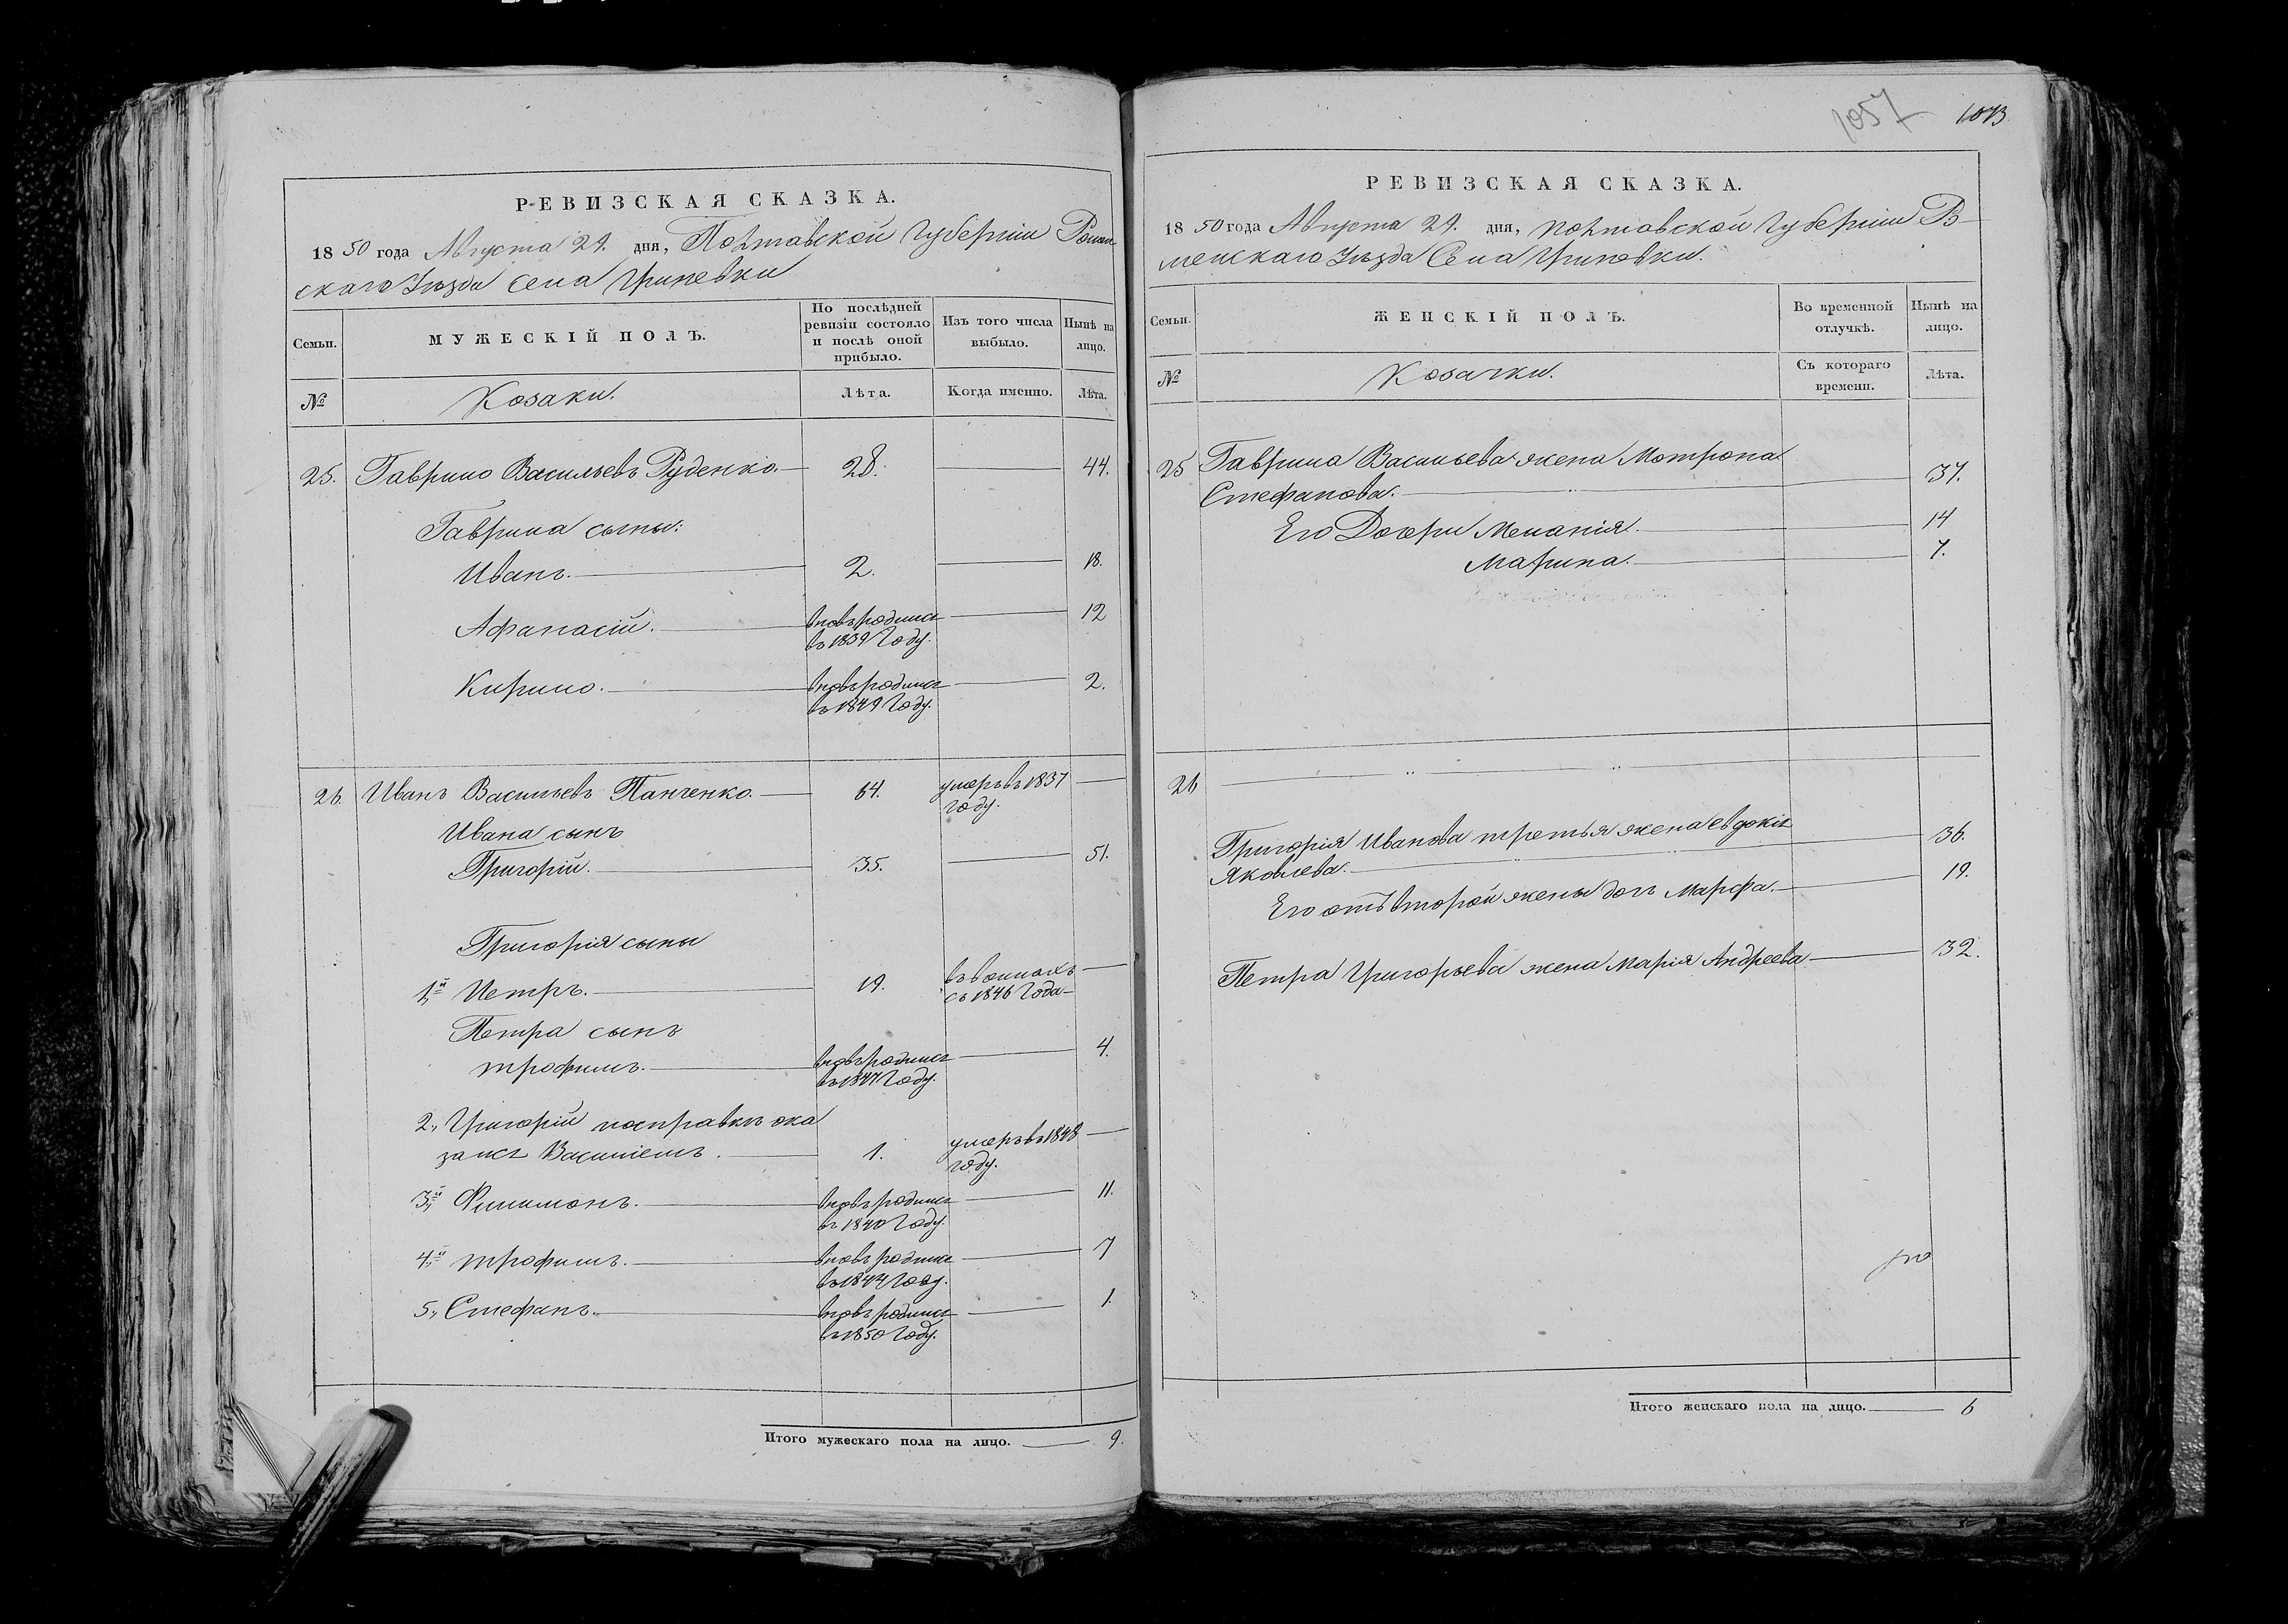 РЕВИЗСКАЯ СКАЗКА.
1850 года Августа 29. дня, Полтавской Губерніи Ромен
скаго Уѣзда Села Гриневки
Семьи.
МУЖЕСКІЙ ПОЛЪ.
По послѣдней ревизіи состояло и послѣ оной прибыло.
Изъ того числа выбыло.
Нынѣ на лицо.
№
Козаки.
Лѣта.
Когда именно.
Лѣта.
25. Гаврило Васильевъ Руденко. 28. 44.
Гаврила сыны:
Иванъ. 2. 18.
Афанасій. вновь родился 12
въ 1839 Году.
Кирило. вновь родился 2.
въ 1849 Году.
26. Иванъ Васильевъ Панченко. 64. умеръ въ 1837
году.
Ивана сынъ
Григорій. 35. 51.
Григорія сыны
1й Петръ. 19. въ
съ 1846 Года
Петра сынъ
трофимъ. вновь родился 4.
въ 1847 Году.
2., Григорій посправкѣ ока
зался Василіемъ. 1. умеръ въ 1848
году.
3й Филимонъ. вновь родился 11.
въ 1840 Году.
4й трофимъ. вновь родился 7
въ 1844 Году.
5., Стефанъ. вновь родился 1.
въ 1850 Году.
Итого мужескаго пола на лицо. 9.
1057 1073
РЕВИЗСКАЯ СКАЗКА.
1850 года Августа 29. дня, Полтавской Губерніи Ро
менскаго Уѣзда Села Гриневки.
Семьи.
ЖЕНСКІЙ ПОЛЪ.
Во временной отлучкѣ.
Нынѣ на лицо.
№
Козачки.
Съ котораго времени.
Лѣта.
25 Гаврила Васильева жена Мотрона
Стефанова. 37.
Его Дочери Меланія. 14
Марина. 7.
26
Григорія Иванова третья жена евдокія
Яковлева. 36.
Его отъ второй жены дочь Марфа. 19.
Петра Григорьева жена Марія Андреева 32.
Итого женскаго пола на лицо. 6